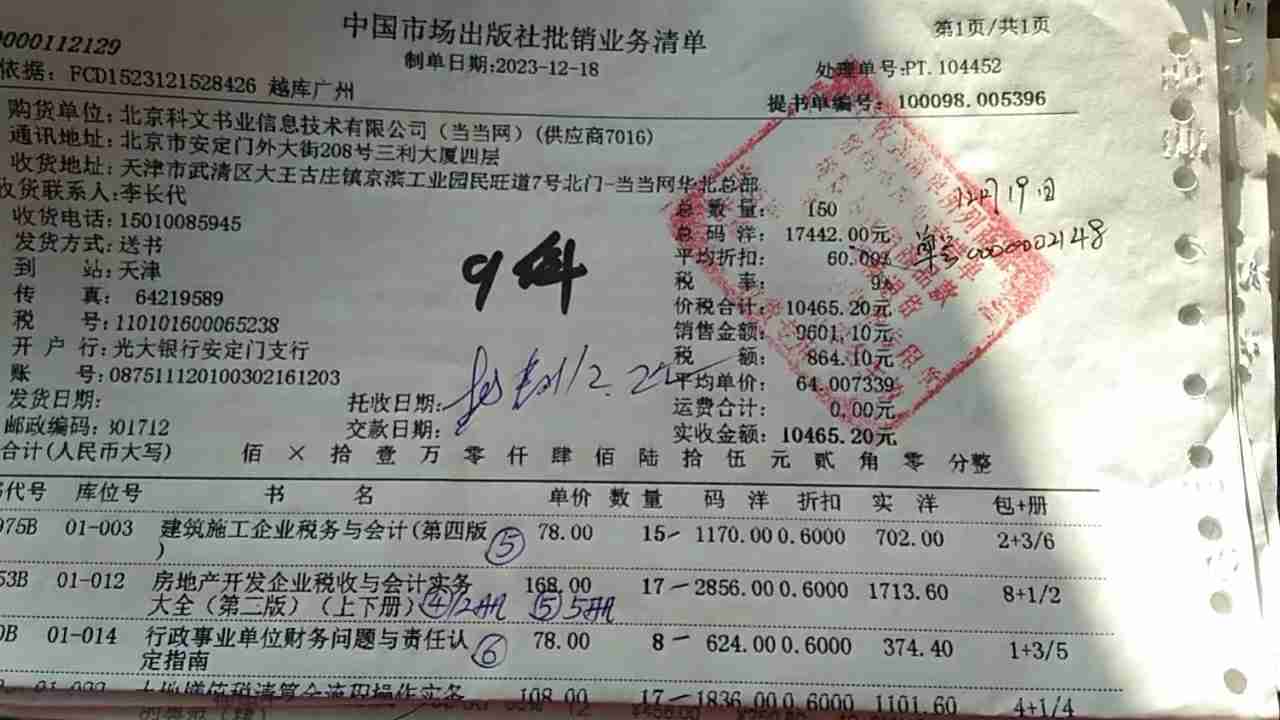 中国市场出版社批销业务清单
第1页/共1页
0000112129
制单日期:2023-12-18
处理单号:PT.104452
依据: FCD1523121528426 越库广州
提书单编号: 100098.005396
购货单位: 北京科文书业信息技术有限公司（当当网）(供应商7016)
通讯地址: 北京市安定门外大街208号三利大厦四层
收货地址: 天津市武清区大王古庄镇京滨工业园民旺道7号北门-当当网华北总部
收货联系人: 李长代
总 数 量: 150
12月19日
收货电话: 15010085945
总 码 洋: 17442.00元
单号0000002148
发货方式: 送书
平均折扣: 60.00%
9件
到 站: 天津
税 率: 9%
传 真: 64219589
价税合计: 10465.20元
税 号: 110101600065238
销售金额: 9601.10元
开 户 行: 光大银行安定门支行
税 额: 864.10元
账 号: 08751112010030216​1203
平均单价: 64.007339
发货日期:
托收日期:
12.22
运费合计: 0.00元
邮政编码: 301712
交款日期:
实收金额: 10465.20元
合计(人民币大写) 佰 × 拾 壹 万 零 仟 肆 佰 陆 拾 伍 元 贰 角 零 分整
代号 库位号 书 名 单价 数 量 码 洋 折扣 实 洋 包+册
975B 01-003 建筑施工企业税务与会计(第四版 ⑤ 78.00 15 1170.00 0.6000 702.00 2+3/6
)
53B 01-012 房地产开发企业税收与会计实务 168.00 17 2856.00 0.6000 1713.60 8+1/2
大全（第二版）（上下册） ④12册 ⑤5册
0B 01-014 行政事业单位财务问题与责任认 ⑥ 78.00 8 624.00 0.6000 374.40 1+3/5
定指南
土地增值税清算全流程操作实务 108.00 17 1836.00 0.6000 1101.60 4+1/4